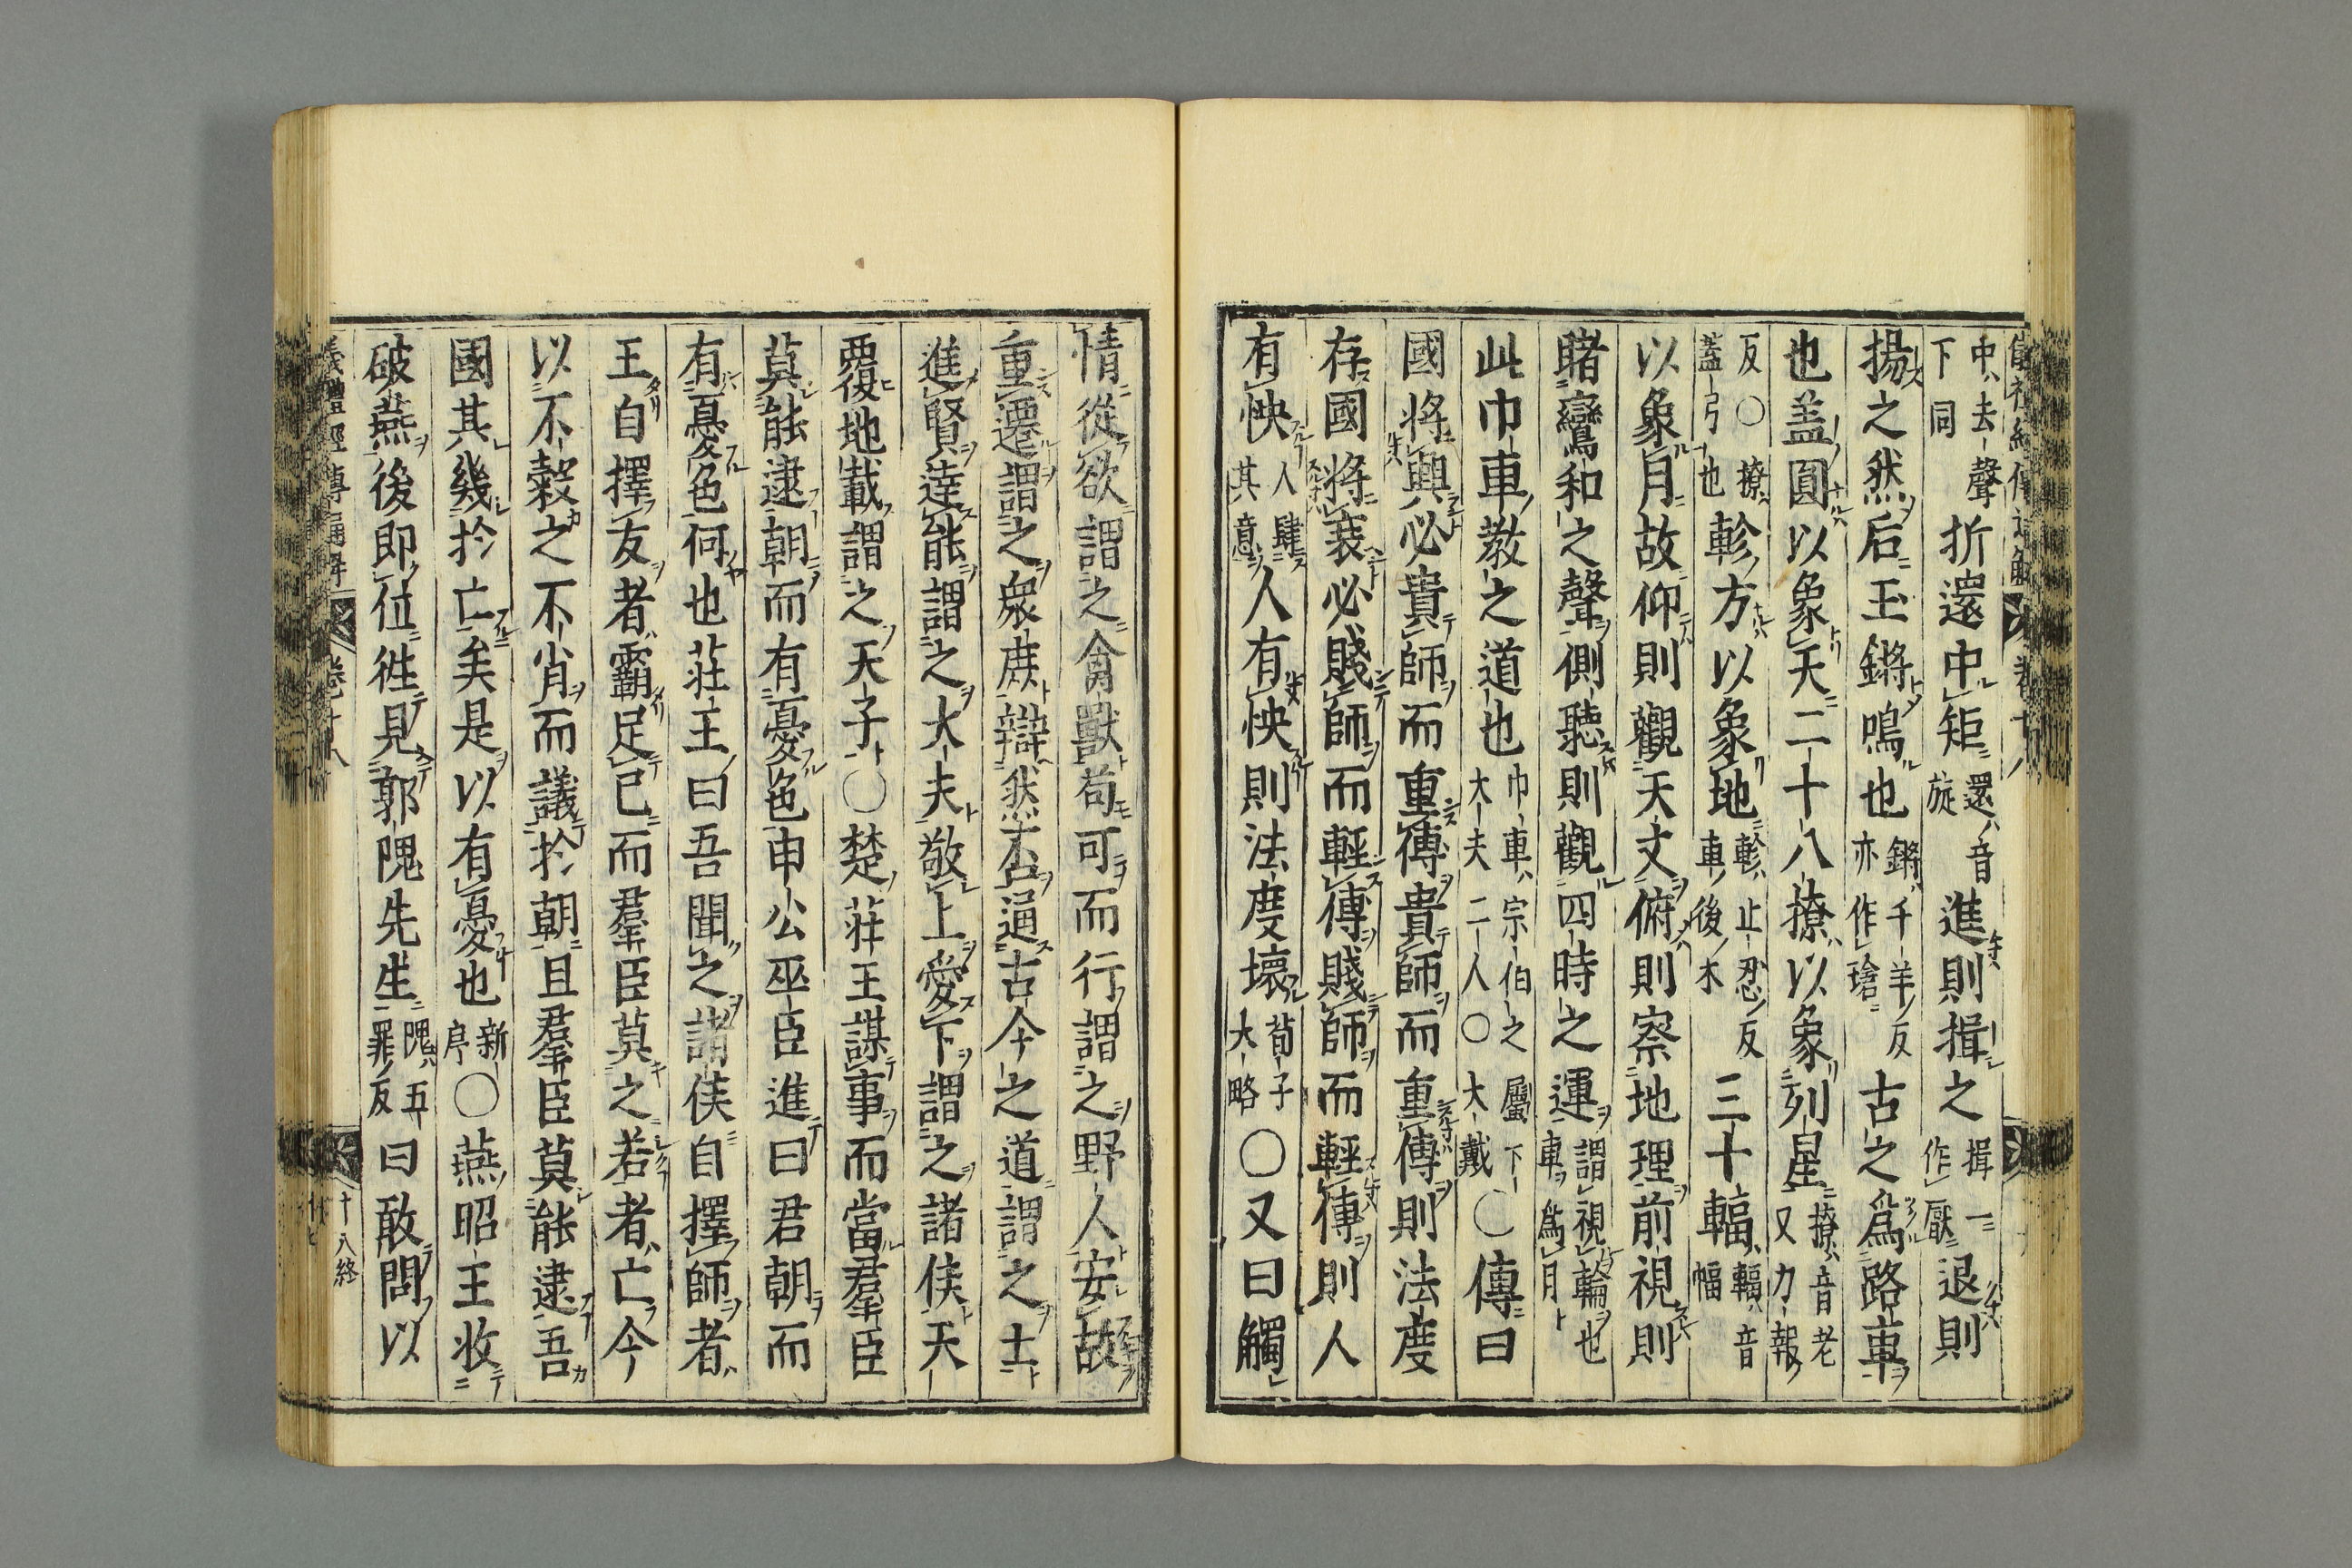 中去聲下同折還中矩還音旋進則揖之揖一作厭退則
揚之然后玉鏘鳴也鏘千羊反亦作瑲古之爲路車
也盖圓以象天二十八橑以象列星橑音老又力報
反○橑蓋弓也軫方以象地軫止忍反車後木三十輻輻音幅
以象月故仰則觀天文俯則察地理前視則
睹鸞和之聲側聽則觀四時之運謂視輪也車爲月
此巾車教之道也巾車宗伯之屬下大夫二人○大戴○傳曰
國將興必貴師而重傅貴師而重傅則法度
存國將衰必賤師而輕傅賤師而輕傅則人
有怏人肆其意人有怏則法度壞荀子大略○又曰觸
情從欲謂之禽獸苟可而行謂之野人安故
重遷謂之衆庶辯然否通古今之道謂之士
進賢達能謂之大夫敬上愛下謂之諸侯天
覆地載謂之天子○楚莊王謀事而當羣臣
莫能逮朝而有憂色申公巫臣進曰君朝而
有憂色何也莊王曰吾聞之諸侯自擇師者
王自擇友者霸足己而羣臣莫之若者亡今
以不穀之不肖而議於朝且羣臣莫能逮吾
國其幾於亡矣是以有憂也新序○燕昭王收
破燕後即位徃見郭隗先生隗五罪反曰敢問以
儀禮經傳通解 卷十八 十八終